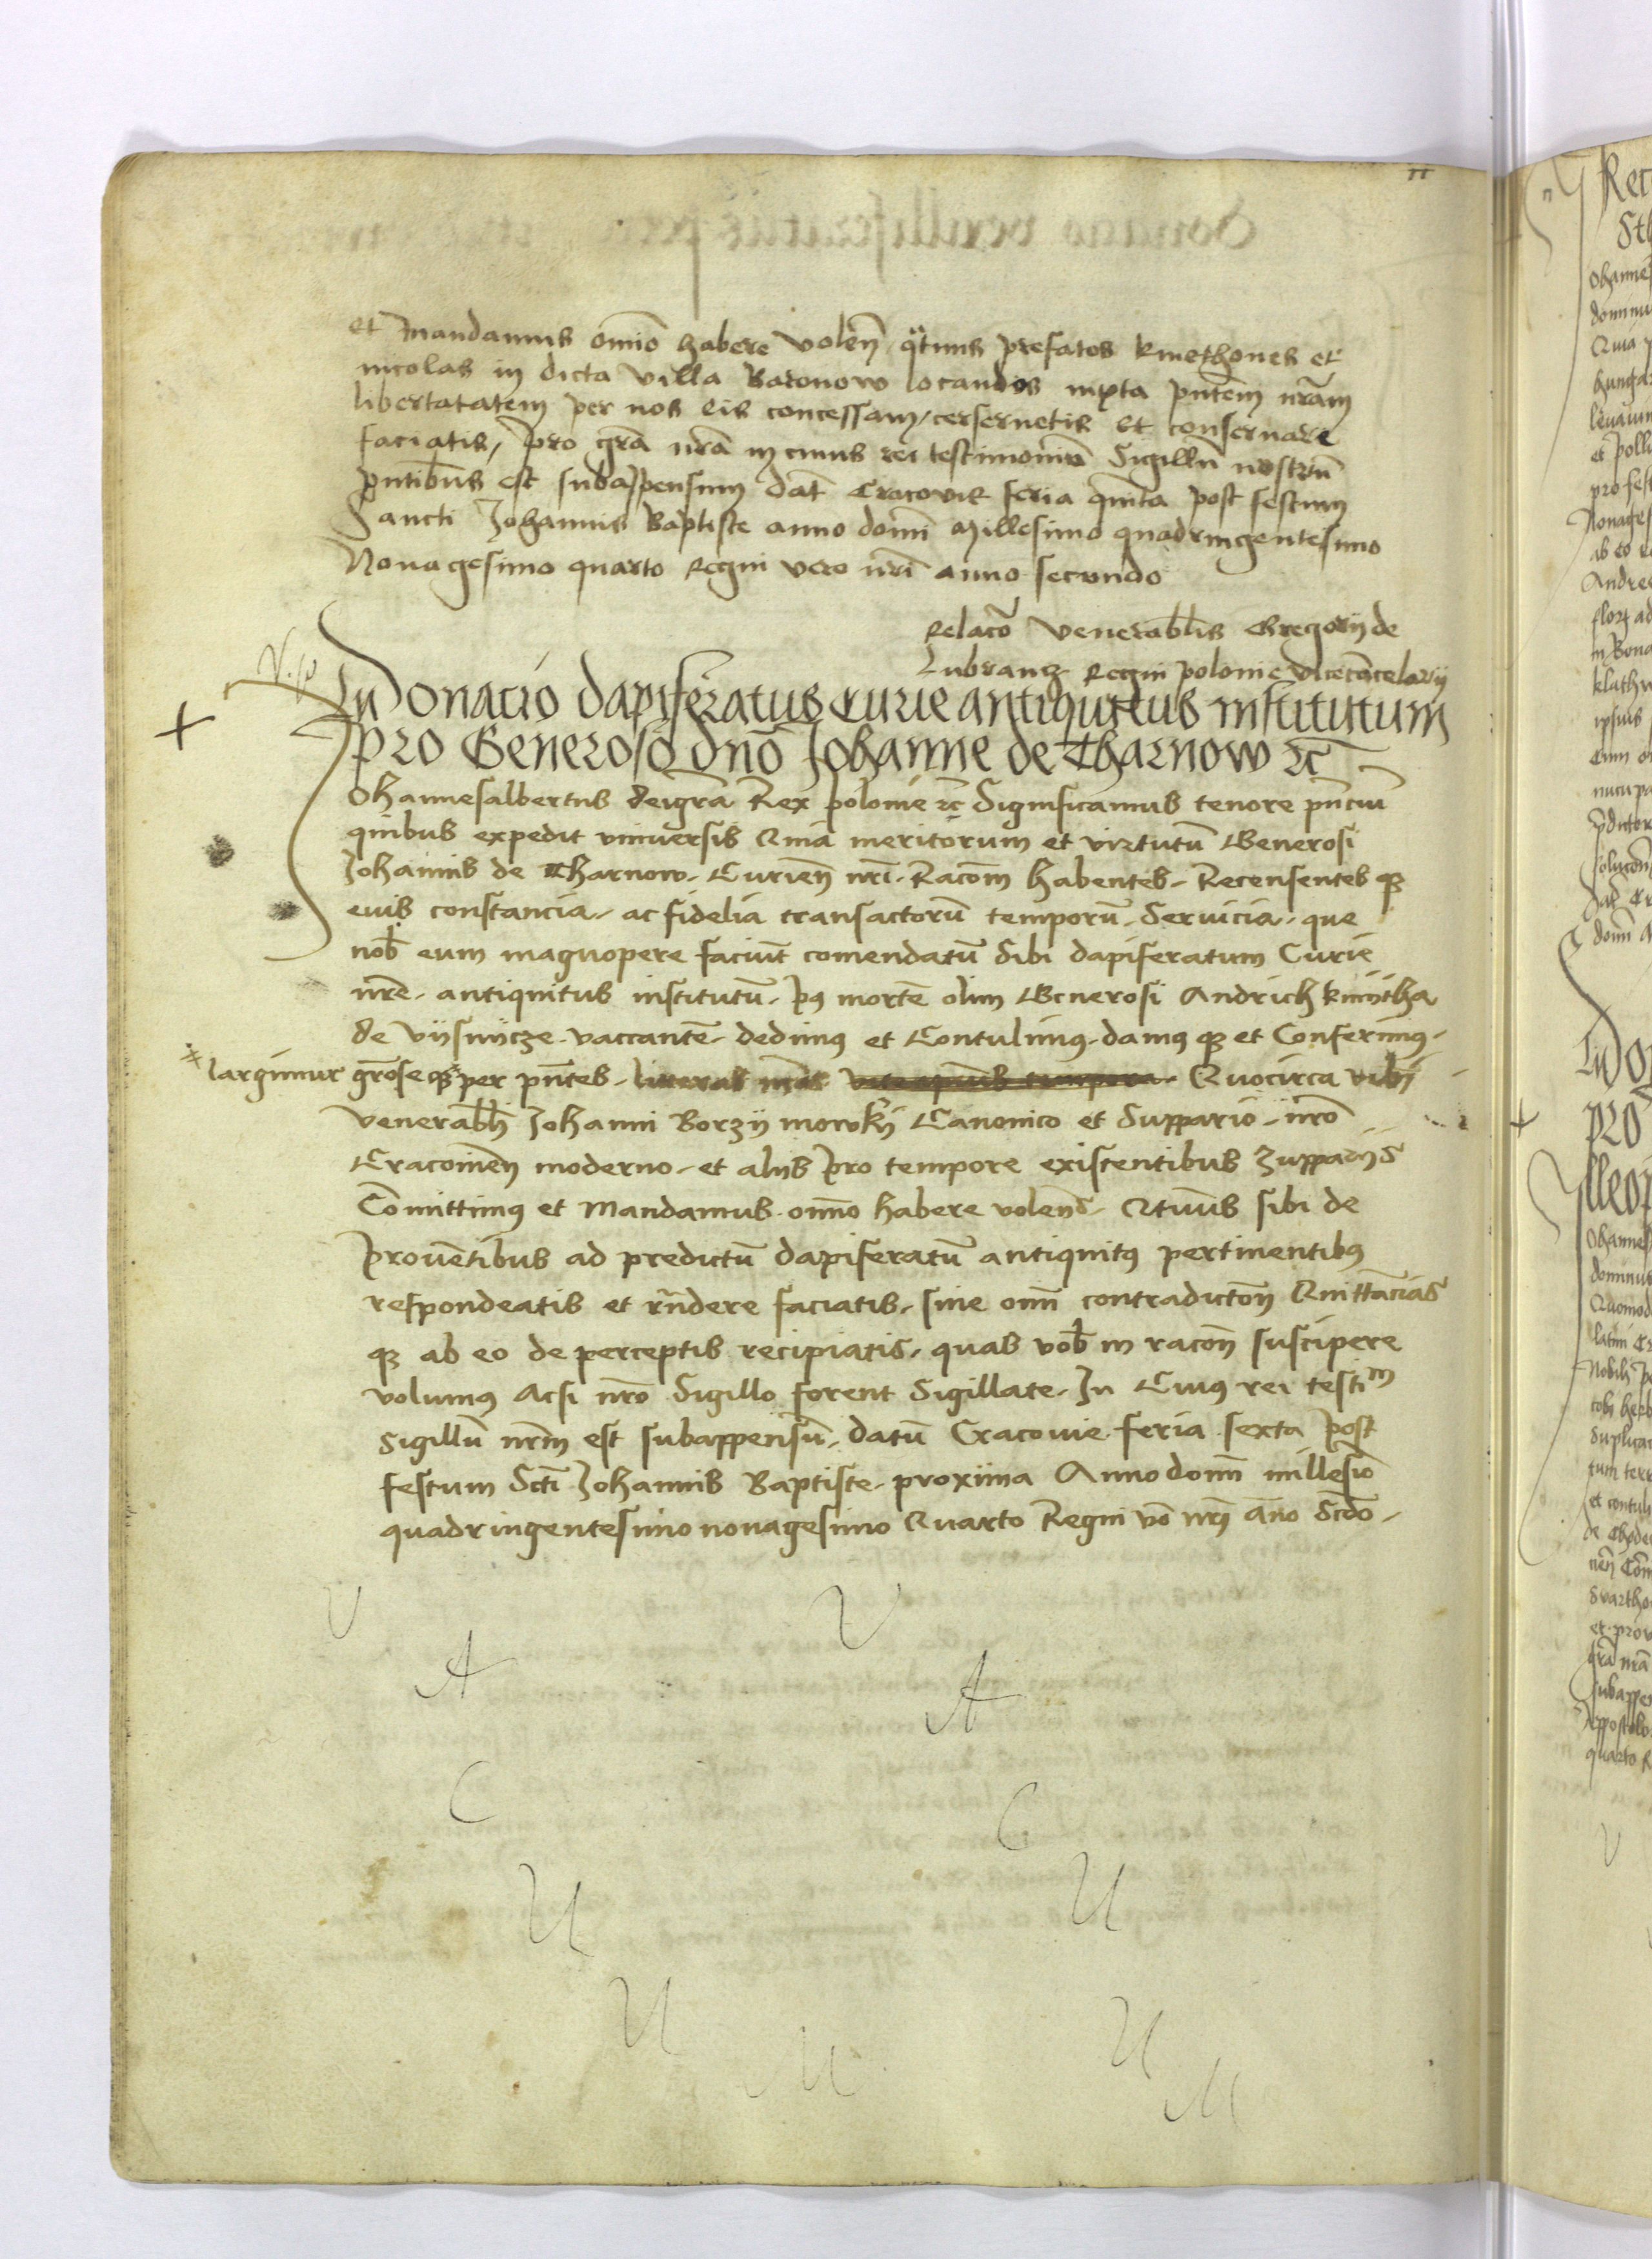 et Mandamus omīo habere volen̄ q̈tnus prefatos kmethones et
incolas in dicta villa Baronow locandos iuxta pn̄tem nrām
libertatatem per nos eis concessam / cerseruetis et conseruare
faciatis, pro grā nrā in cuius rei testimoniū Sigillū nostrū
pn̄tibus est subapensum dat̄ Cracovie feria quīta post festum
Sancti Johannis Baptiste anno domī Millesimo quadringentesimo
Nonagesimo quarto Regni vero nrī anno secundo
Relacō venerablis Gregorij de
Lubrancz Regni polonie vicecācelarij
Donacio dapiferatus Curie antiquitus institutum
pro Generoso dn̄o Johanne de Tharnow rc̄
Johannesalbertus deigrā Rex polonie rc̄ Significamus tenore pn̄ciū
quibus expedit vniuersis Quia meritorum et virtutū Generosi
Johannis de Tharnow - Curien̄ nrī - Racōm habentes - Recensentes qȝ
euis constancia - ac fidelia transactorū temporū - Seruicia - que
nob̄ eum magnopere faciūt comendatū Sibi dapiferatum Curie
nrē - antiquitus institutū - pꝰ mortē olim Generosi Andrich kmijtha
de vijsnijcze - vaccantē - dedimꝰ et Contulimꝰ - damꝰ qȝ et Conferimꝰ -
largimur grōse qȝ per pn̄tes - litteras nrās Quocirca vobis
venerabli Johanni Borzijmowskij Canonico et Suppario - nrō
Cracouien̄ moderno - et alijs pro tempore existentibus Zupparijs
Cōmittimꝰ et Mandamus - omīo habere volen̄ - Qtinus sibi de
prouētibus ad predictū dapiferatū antiquitꝰ pertinentibꝰ
respondeatis et rn̄dere faciatis - sine omī contradictōn̄ Quittācias
qȝ ab eo de perceptis recipiatis - quas vob̄ in racōn̄ suscipere
volumꝰ Acsi nrō Sigillo forent Sigillate - In Cuiꝰ rei testim
Sigillū nrm̄ est subappensū - datū Cracouie feria sexta post
festum Sct̄i Johannis Baptiste - proxiima Anno domī millesīo
quadringentesimo nonagesimo Quarto Regni vō nrī āno Scdō -
V V
A A
C C
U U
U U
M M